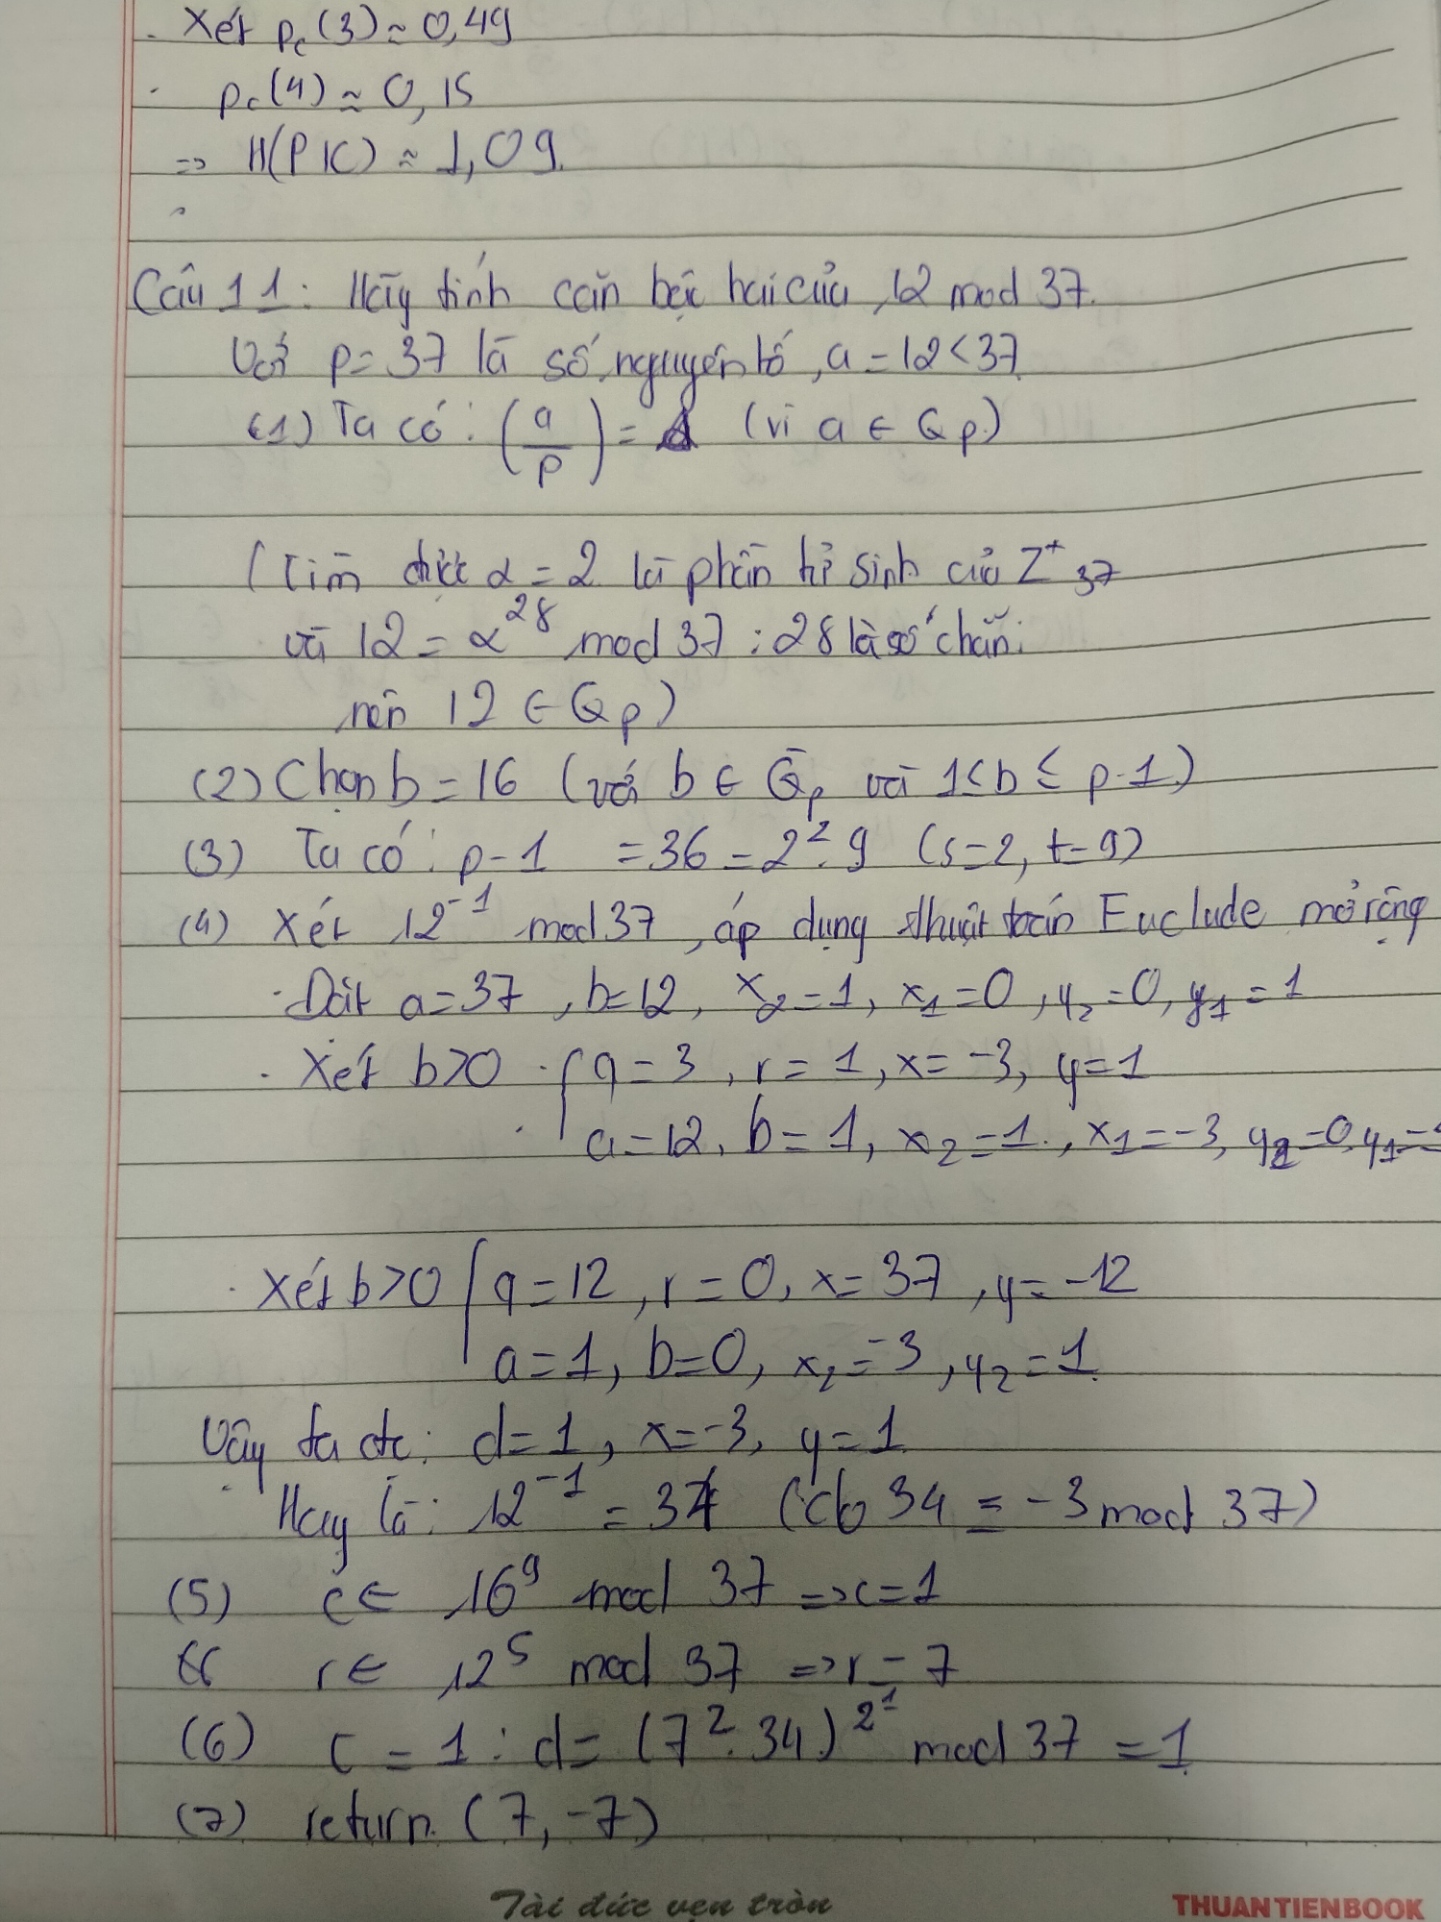 . Xét pc(3) ≈ 0,49
. pc(4) ≈ 0,15
=> H(P|C) ≈ 1,09.
Câu 11: Hãy tính căn bậc hai của 12 mod 37.
Với p = 37 là số nguyên tố, a = 12 < 37
(1) Ta có: (a/p) = 1 (vì a ∈ Qp)
(Tìm được α = 2 là phần tử sinh của Z⁺37
và 12 = α²⁸ mod 37 : 28 là số chẵn.
nên 12 ∈ Qp)
(2) Chọn b = 16 (với b ∈ Q̄p và 1 ≤ b ≤ p-1)
(3) Ta có: p-1 = 36 = 2².9 (s=2, t=9)
(4) Xét 12⁻¹ mod 37, áp dụng thuật toán Euclude mở rộng
. Đặt a=37, b=12, x₂=1, x₁=0, y₂=0, y₁=1
. Xét b>0 . { q=3, r=1, x=-3, y=1
. a=12, b=1, x₂=1., x₁=-3, y₂=0, y₁=
. Xét b>0 { q=12, r=0, x=37, y=-12
a=1, b=0, x₂=-3, y₂=1.
Vậy ta đc: d=1, x=-3, y=1
. Hay là: 12⁻¹ = 34 (do 34 ≡ -3 mod 37)
(5) c ← 16⁹ mod 37 => c=1
r ← 12⁵ mod 37 => r=7
(6) c = 1 : d = (7².34)^2¹ mod 37 = 1
(7) return (7, -7)
Tài đức vẹn tròn
THUANTIENBOOK